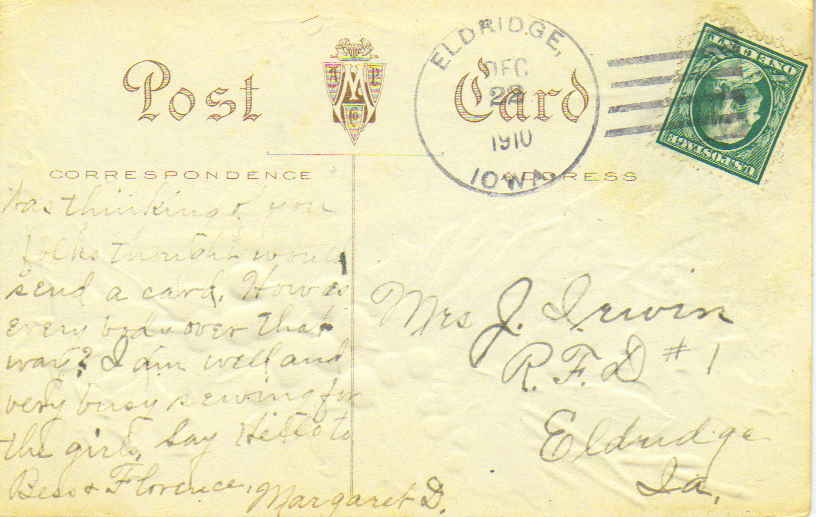 Post Card
ELDRIDGE,
DEC
22
1910
IOWA
ONE CENT
U.S. POSTAGE
CORRESPONDENCE
ADDRESS
Was thinking of you
folks thought would
send a card. How is
every body over that
way? I am well and
very busy sewing for
the girls, Say Hello to
Bess & Florence,
Margaret D.
Mrs J. Irwin
R.F.D #1
Eldridge
Ia.